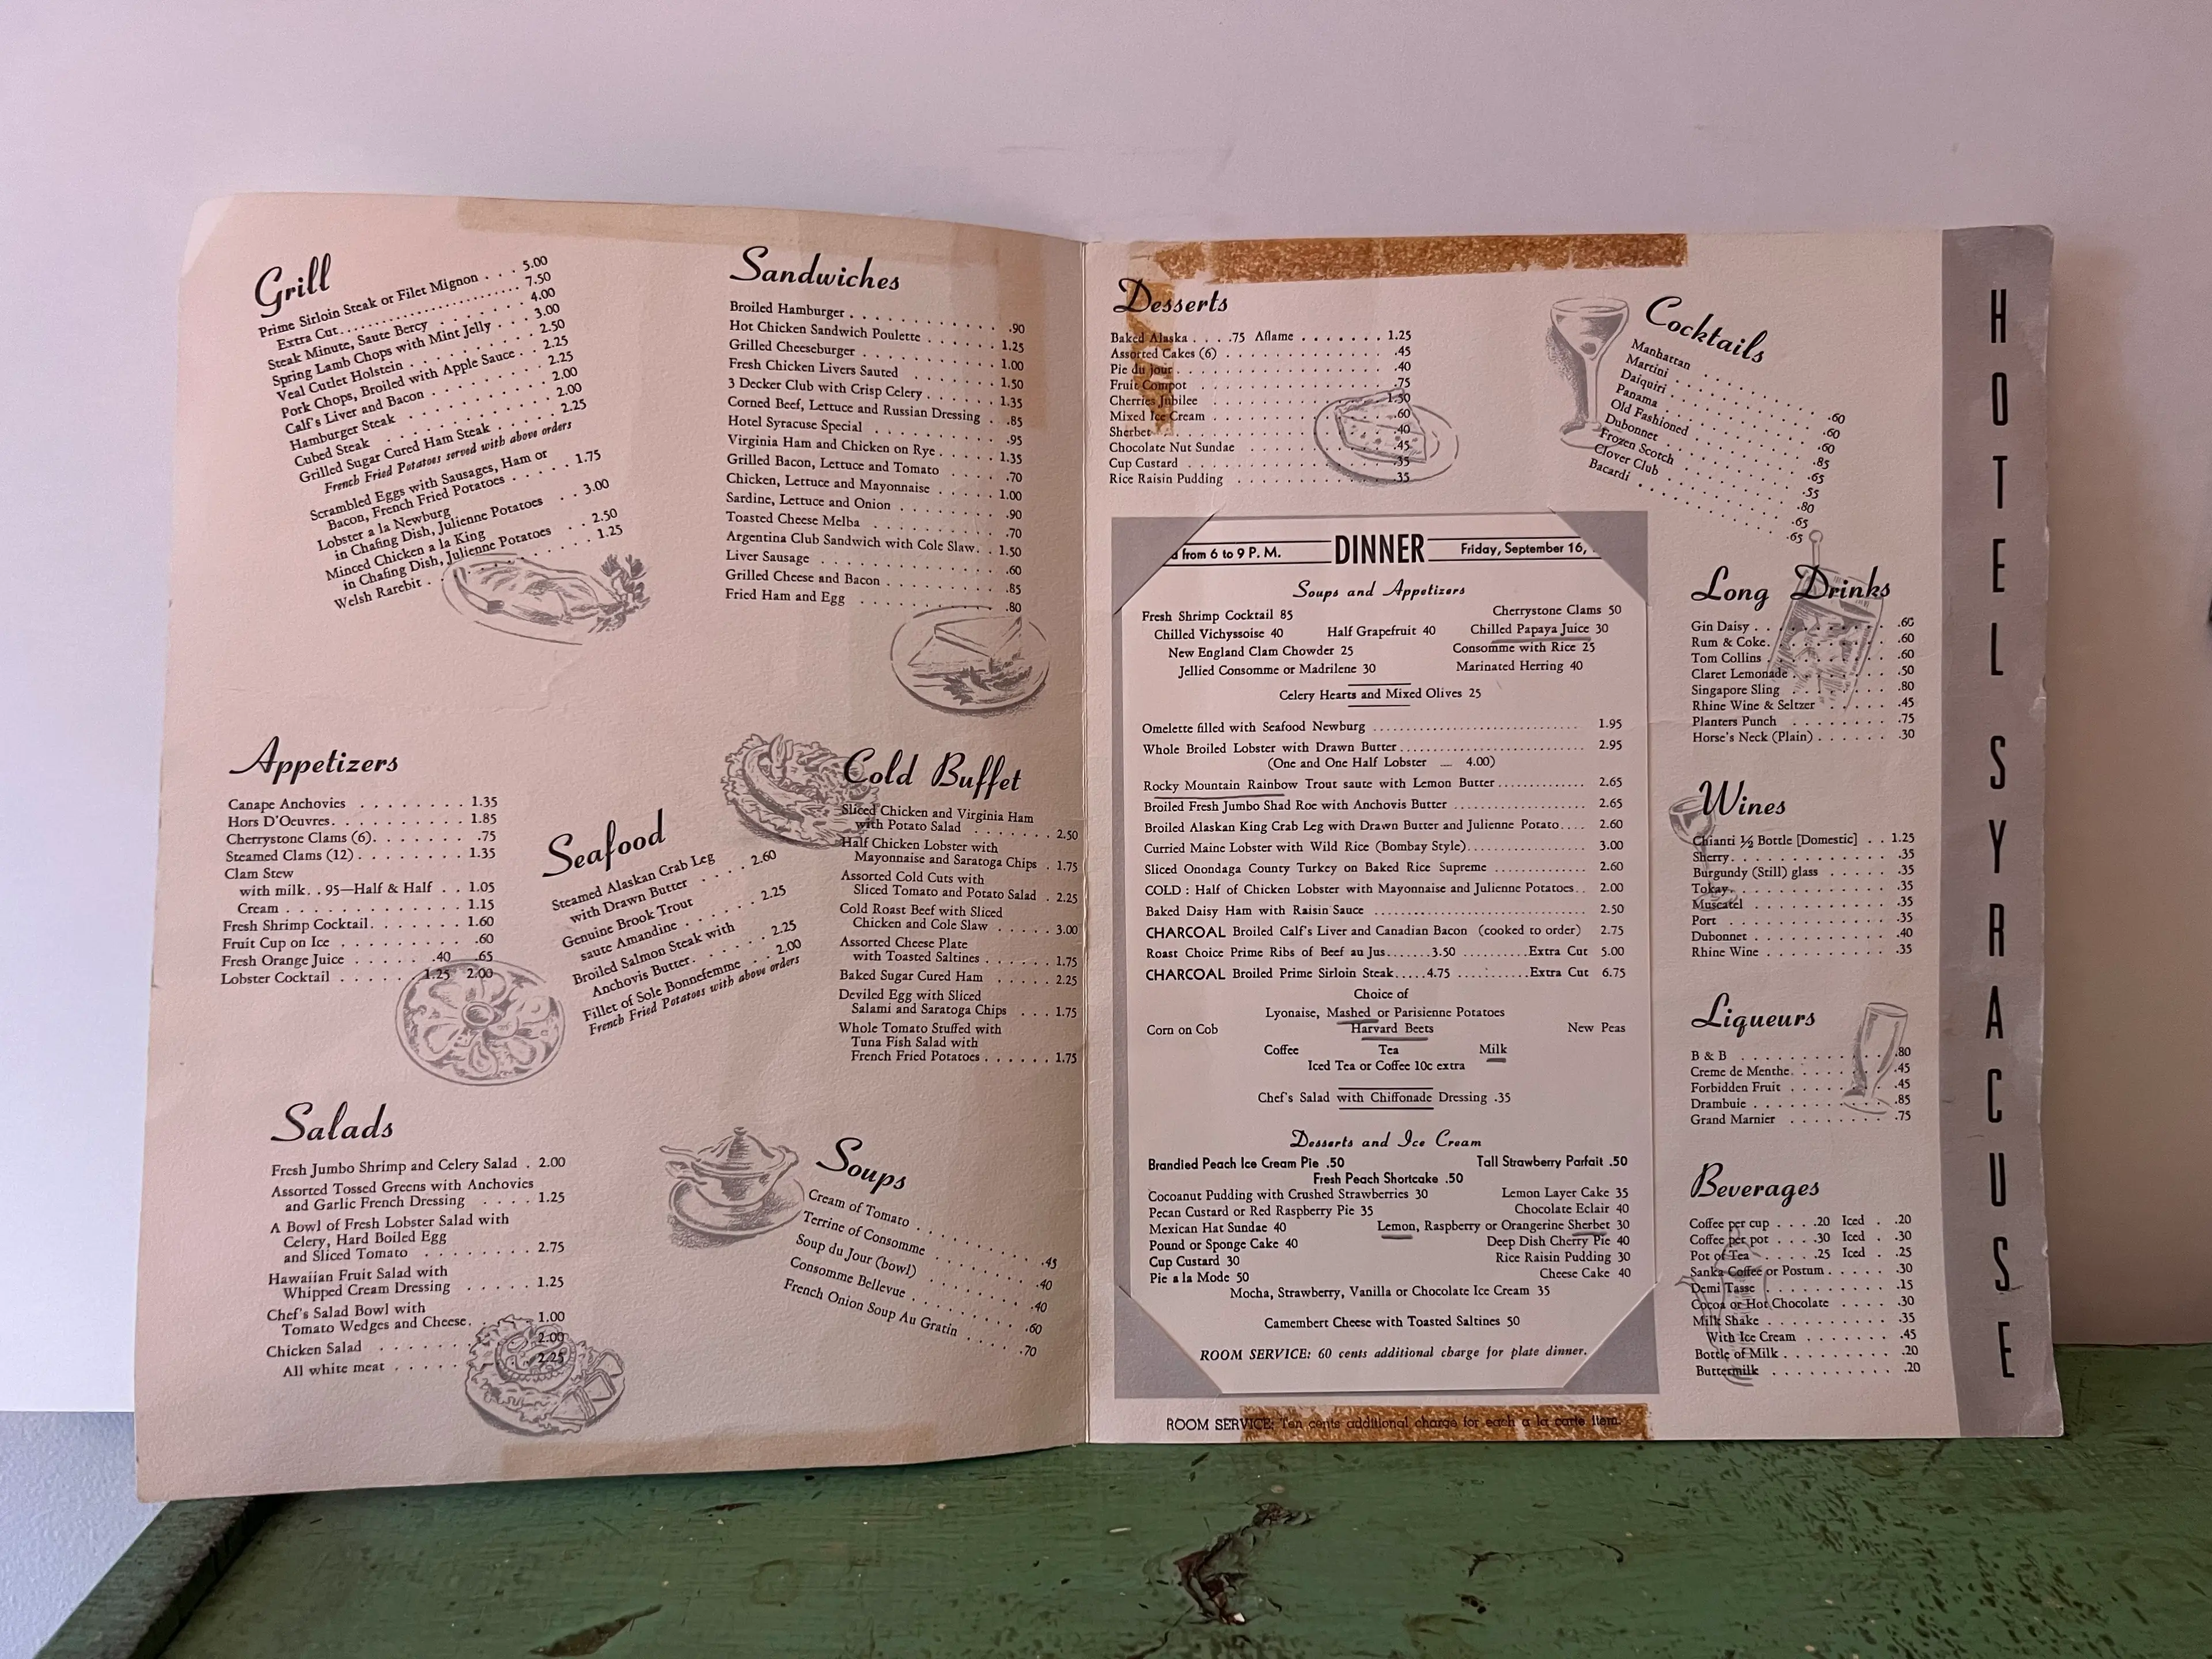 Grill
Prime Sirloin Steak or Filet Mignon . . . 5.00
Extra Cut . . . 7.50
Steak Minute, Saute Bercy . . . 4.00
Spring Lamb Chops with Mint Jelly . . . 3.00
Veal Cutlet Holstein . . . 2.50
Pork Chops, Broiled with Apple Sauce . . 2.25
Calf's Liver and Bacon . . . 2.25
Hamburger Steak . . . 2.00
Cubed Steak . . . 2.00
Grilled Sugar Cured Ham Steak . . . 2.25
French Fried Potatoes served with above orders
Scrambled Eggs with Sausages, Ham or
Bacon, French Fried Potatoes . . . 1.75
Lobster a la Newburg
in Chafing Dish, Julienne Potatoes . . 3.00
Minced Chicken a la King
in Chafing Dish, Julienne Potatoes . . 2.50
Welsh Rarebit . . . 1.25
Sandwiches
Broiled Hamburger . . . .90
Hot Chicken Sandwich Poulette . . . 1.25
Grilled Cheeseburger . . . 1.00
Fresh Chicken Livers Sauted . . . 1.50
3 Decker Club with Crisp Celery . . . 1.35
Corned Beef, Lettuce and Russian Dressing . .85
Hotel Syracuse Special . . . .95
Virginia Ham and Chicken on Rye . . . 1.35
Grilled Bacon, Lettuce and Tomato . . . .70
Chicken, Lettuce and Mayonnaise . . . 1.00
Sardine, Lettuce and Onion . . . .90
Toasted Cheese Melba . . . .70
Argentina Club Sandwich with Cole Slaw . . 1.50
Liver Sausage . . . .60
Grilled Cheese and Bacon . . . .85
Fried Ham and Egg . . . .80
Appetizers
Canape Anchovies . . . 1.35
Hors D'Oeuvres . . . 1.85
Cherrystone Clams (6) . . . .75
Steamed Clams (12) . . . 1.35
Clam Stew
with milk . . 95—Half & Half . . 1.05
Cream . . . 1.15
Fresh Shrimp Cocktail . . . 1.60
Fruit Cup on Ice . . . .60
Fresh Orange Juice . . . .40 .65
Lobster Cocktail . . . 1.25 2.00
Seafood
Steamed Alaskan Crab Leg
with Drawn Butter . . . 2.60
Genuine Brook Trout
saute Amandine . . . 2.25
Broiled Salmon Steak with
Anchovis Butter . . . 2.25
Fillet of Sole Bonnefemme . . 2.00
French Fried Potatoes with above orders
Cold Buffet
Sliced Chicken and Virginia Ham
with Potato Salad . . . 2.50
Half Chicken Lobster with
Mayonnaise and Saratoga Chips . 1.75
Assorted Cold Cuts with
Sliced Tomato and Potato Salad . 2.25
Cold Roast Beef with Sliced
Chicken and Cole Slaw . . . 3.00
Assorted Cheese Plate
with Toasted Saltines . . . 1.75
Baked Sugar Cured Ham . . . 2.25
Deviled Egg with Sliced
Salami and Saratoga Chips . . . 1.75
Whole Tomato Stuffed with
Tuna Fish Salad with
French Fried Potatoes . . . 1.75
Salads
Fresh Jumbo Shrimp and Celery Salad . 2.00
Assorted Tossed Greens with Anchovies
and Garlic French Dressing . . . 1.25
A Bowl of Fresh Lobster Salad with
Celery, Hard Boiled Egg
and Sliced Tomato . . . 2.75
Hawaiian Fruit Salad with
Whipped Cream Dressing . . . 1.25
Chef's Salad Bowl with
Tomato Wedges and Cheese . . . 1.00
Chicken Salad . . . 2.00
All white meat . . . 2.25
Soups
Cream of Tomato . . . .45
Terrine of Consomme . . . .40
Soup du Jour (bowl) . . . .40
Consomme Bellevue . . . .60
French Onion Soup Au Gratin . . . .70
Desserts
Baked Alaska . . . .75 Aflame . . . 1.25
Assorted Cakes (6) . . . .45
Pie du Jour . . . .40
Fruit Compot . . . .75
Cherries Jubilee . . . 1.50
Mixed Ice Cream . . . .60
Sherbet . . . .40
Chocolate Nut Sundae . . . .45
Cup Custard . . . .35
Rice Raisin Pudding . . . .35
Cocktails
Manhattan . . . .60
Martini . . . .60
Daiquiri . . . .60
Panama . . . .85
Old Fashioned . . . .65
Dubonnet . . . .55
Frozen Scotch . . . .80
Clover Club . . . .65
Bacardi . . . .65
from 6 to 9 P. M. DINNER Friday, September 16,
Soups and Appetizers
Fresh Shrimp Cocktail 85 Cherrystone Clams 50
Chilled Vichyssoise 40 Half Grapefruit 40 Chilled Papaya Juice 30
New England Clam Chowder 25 Consomme with Rice 25
Jellied Consomme or Madrilene 30 Marinated Herring 40
Celery Hearts and Mixed Olives 25
Omelette filled with Seafood Newburg . . . 1.95
Whole Broiled Lobster with Drawn Butter . . . 2.95
(One and One Half Lobster .... 4.00)
Rocky Mountain Rainbow Trout saute with Lemon Butter . . . 2.65
Broiled Fresh Jumbo Shad Roe with Anchovis Butter . . . 2.65
Broiled Alaskan King Crab Leg with Drawn Butter and Julienne Potato . . . 2.60
Curried Maine Lobster with Wild Rice (Bombay Style) . . . 3.00
Sliced Onondaga County Turkey on Baked Rice Supreme . . . 2.60
COLD : Half of Chicken Lobster with Mayonnaise and Julienne Potatoes . . 2.00
Baked Daisy Ham with Raisin Sauce . . . 2.50
CHARCOAL Broiled Calf's Liver and Canadian Bacon (cooked to order) 2.75
Roast Choice Prime Ribs of Beef au Jus . . . 3.50 . . . Extra Cut 5.00
CHARCOAL Broiled Prime Sirloin Steak . . . 4.75 . . . Extra Cut 6.75
Choice of
Lyonaise, Mashed or Parisienne Potatoes
Corn on Cob Harvard Beets New Peas
Coffee Tea Milk
Iced Tea or Coffee 10c extra
Chef's Salad with Chiffonade Dressing .35
Desserts and Ice Cream
Brandied Peach Ice Cream Pie .50 Tall Strawberry Parfait .50
Fresh Peach Shortcake .50
Cocoanut Pudding with Crushed Strawberries 30 Lemon Layer Cake 35
Pecan Custard or Red Raspberry Pie 35 Chocolate Eclair 40
Mexican Hat Sundae 40 Lemon, Raspberry or Orangerine Sherbet 30
Pound or Sponge Cake 40 Deep Dish Cherry Pie 40
Cup Custard 30 Rice Raisin Pudding 30
Pie a la Mode 50 Cheese Cake 40
Mocha, Strawberry, Vanilla or Chocolate Ice Cream 35
Camembert Cheese with Toasted Saltines 50
ROOM SERVICE: 60 cents additional charge for plate dinner.
ROOM SERVICE: Ten cents additional charge for each a la carte item.
Long Drinks
Gin Daisy . . . .60
Rum & Coke . . . .60
Tom Collins . . . .60
Claret Lemonade . . . .50
Singapore Sling . . . .80
Rhine Wine & Seltzer . . . .45
Planters Punch . . . .75
Horse's Neck (Plain) . . . .30
Wines
Chianti ½ Bottle [Domestic] . . 1.25
Sherry . . . .35
Burgundy (Still) glass . . . .35
Tokay . . . .35
Muscatel . . . .35
Port . . . .35
Dubonnet . . . .40
Rhine Wine . . . .35
Liqueurs
B & B . . . .80
Creme de Menthe . . . .45
Forbidden Fruit . . . .45
Drambuie . . . .85
Grand Marnier . . . .75
Beverages
Coffee per cup . . . .20 Iced . .20
Coffee per pot . . . .30 Iced . .30
Pot of Tea . . . .25 Iced . .25
Sanka Coffee or Postum . . . .30
Demi Tasse . . . .15
Cocoa or Hot Chocolate . . . .30
Milk Shake . . . .35
With Ice Cream . . . .45
Bottle of Milk . . . .20
Buttermilk . . . .20
HOTEL SYRACUSE